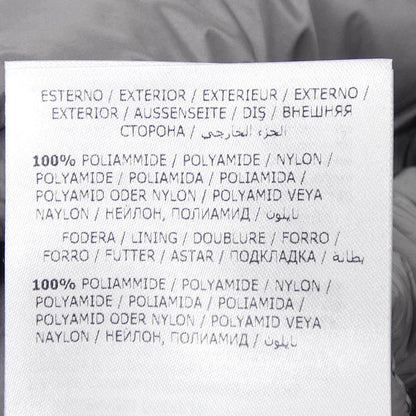 ESTERNO / EXTERIOR / EXTERIEUR / EXTERNO /
EXTERIOR / AUSSENSEITE / DIŞ / ВНЕШНЯЯ
СТОРОНА / الجزء الخارجي
100% POLIAMMIDE / POLYAMIDE / NYLON /
POLYAMIDE / POLIAMIDA / POLIAMIDA /
POLYAMID ODER NYLON / POLYAMID VEYA
NAYLON / НЕЙЛОН, ПОЛИАМИД / نايلون
FODERA / LINING / DOUBLURE / FORRO /
FORRO / FUTTER / ASTAR / ПОДКЛАДКА / بطانة
100% POLIAMMIDE / POLYAMIDE / NYLON /
POLYAMIDE / POLIAMIDA / POLIAMIDA /
POLYAMID ODER NYLON / POLYAMID VEYA
NAYLON / НЕЙЛОН, ПОЛИАМИД / نايلون